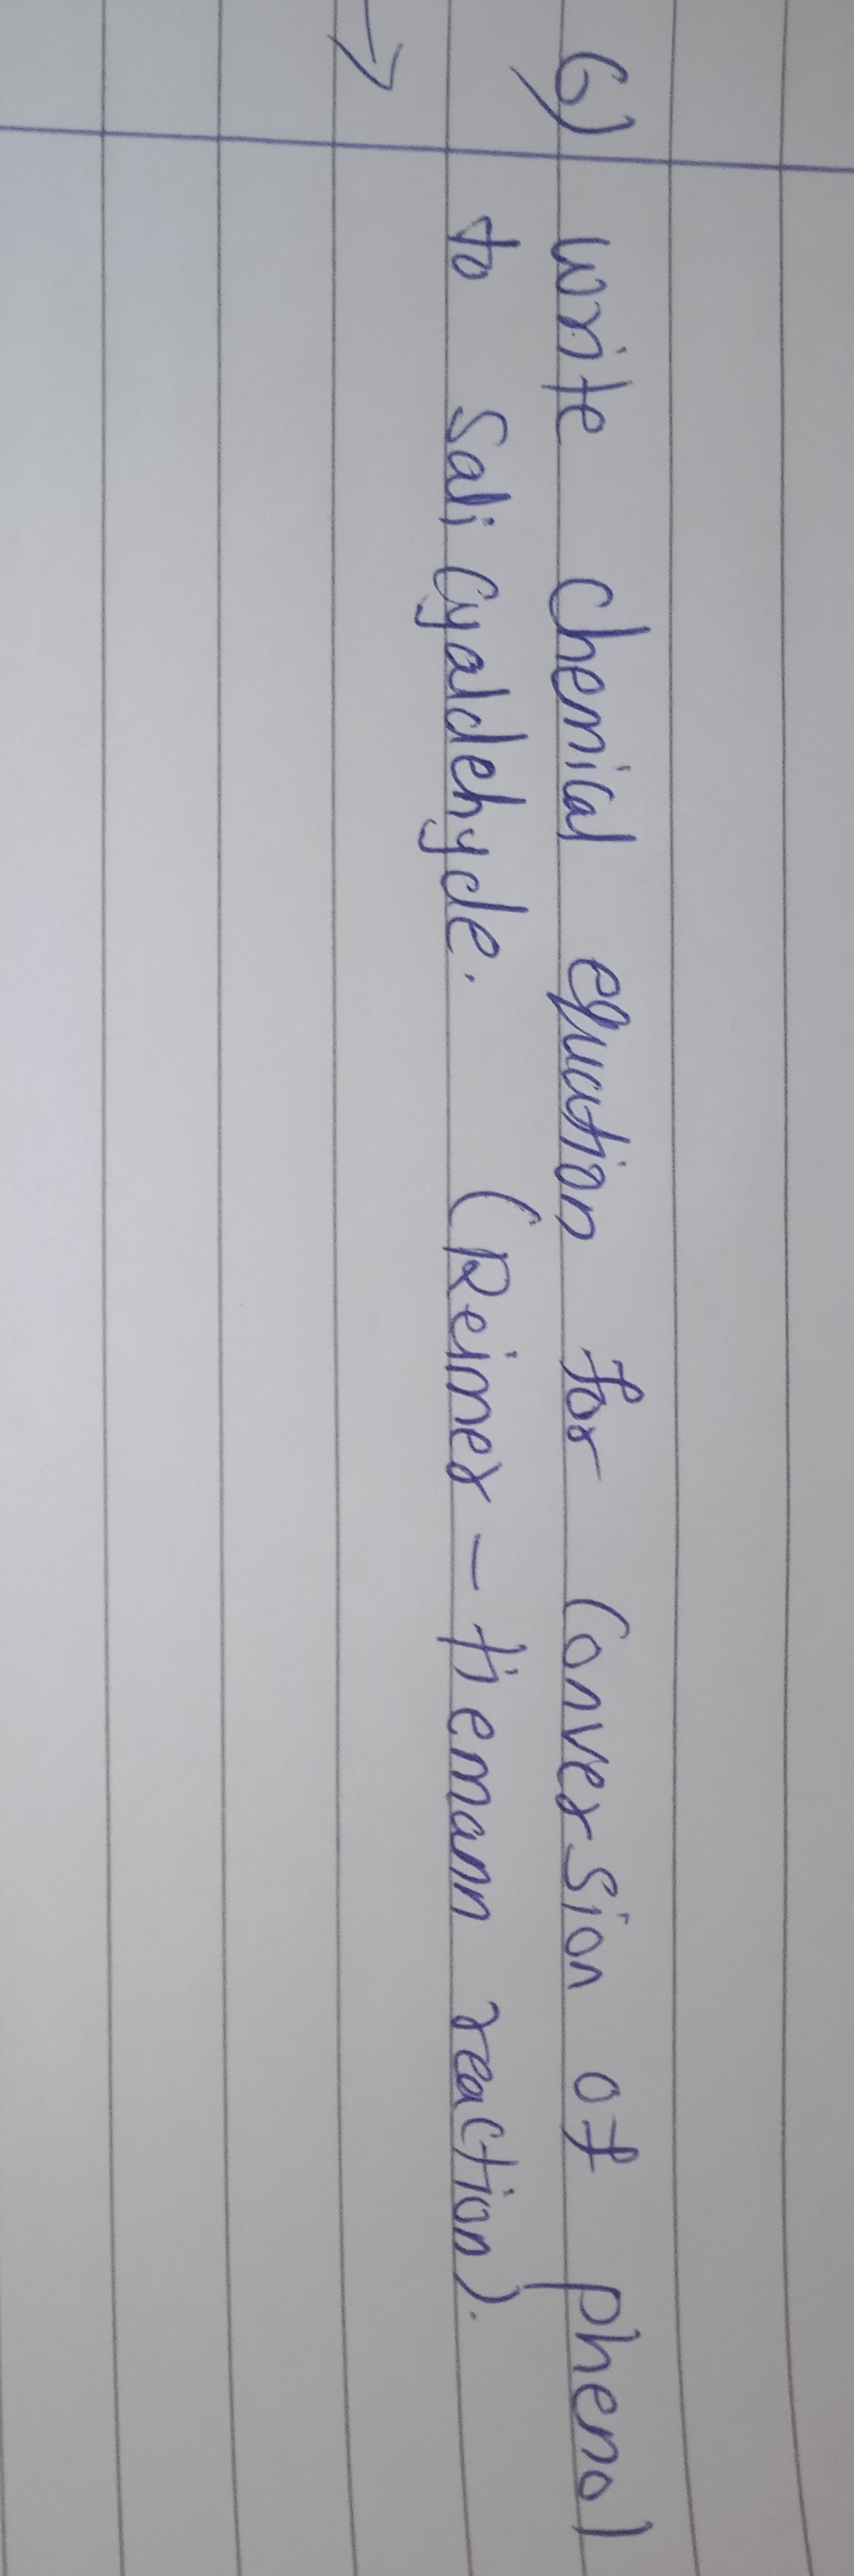 6) write chemical equation for Conversion of phenol
to Salicyaldehyde. (Reimer - tiemann reaction).
→